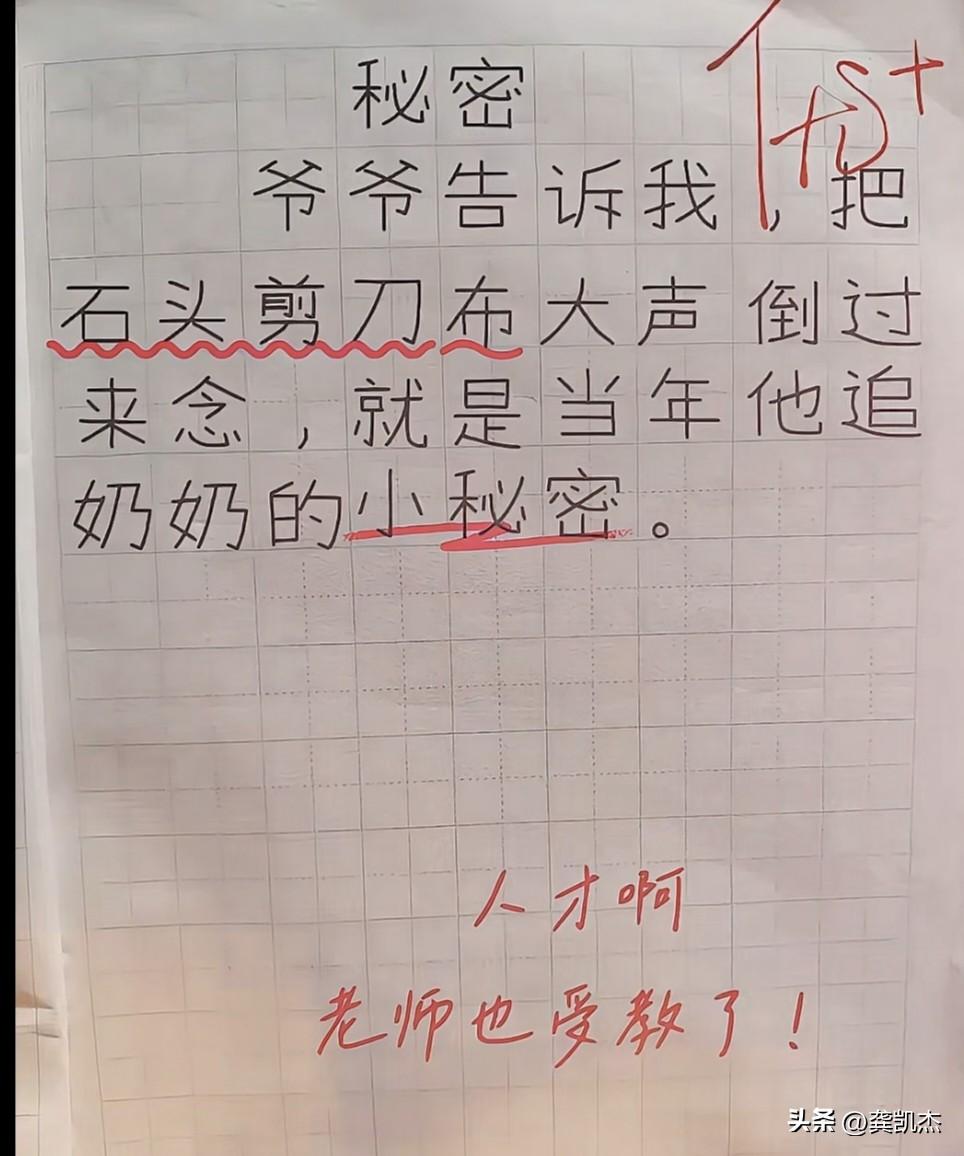 秘密
爷爷告诉我，把
石头剪刀布大声倒过
来念，就是当年他追
奶奶的小秘密。
人才啊
老师也受教了！
头条 @龚凯杰